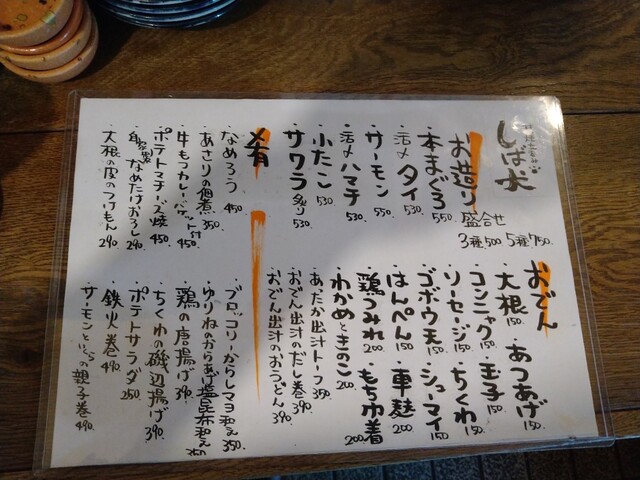 しば犬
お造り 盛合せ
3種500 5種750
本まぐろ 550
活〆タイ 530
サーモン 550
活〆ハマチ 530
小たこ 530
サワラ炙り 530
肴
なめろう 450
あさりの佃煮 350
牛もつカレー バゲット付 450
ポテトマチーズ焼 450
自家製なめたけおろし 290
大根の皮のつけもん 290
おでん
大根 150
あつあげ 150
コンニャク 150
玉子 150
ソーセージ 150
ちくわ 150
ゴボウ天 150
シューマイ 150
はんぺん 150
車麩 200
鶏つみれ 200
もち巾着 200
わかめときのこ 200
あったか出汁トーフ 350
おでん出汁のだし巻 390
おでん出汁のおうどん 390
ブロッコリーからしマヨ和え 350
ゆりねのからあげ塩昆布和え 350
鶏の唐揚げ 390
ちくわの磯辺揚げ 390
ポテトサラダ 250
鉄火巻 490
サーモンといくらの親子巻 490